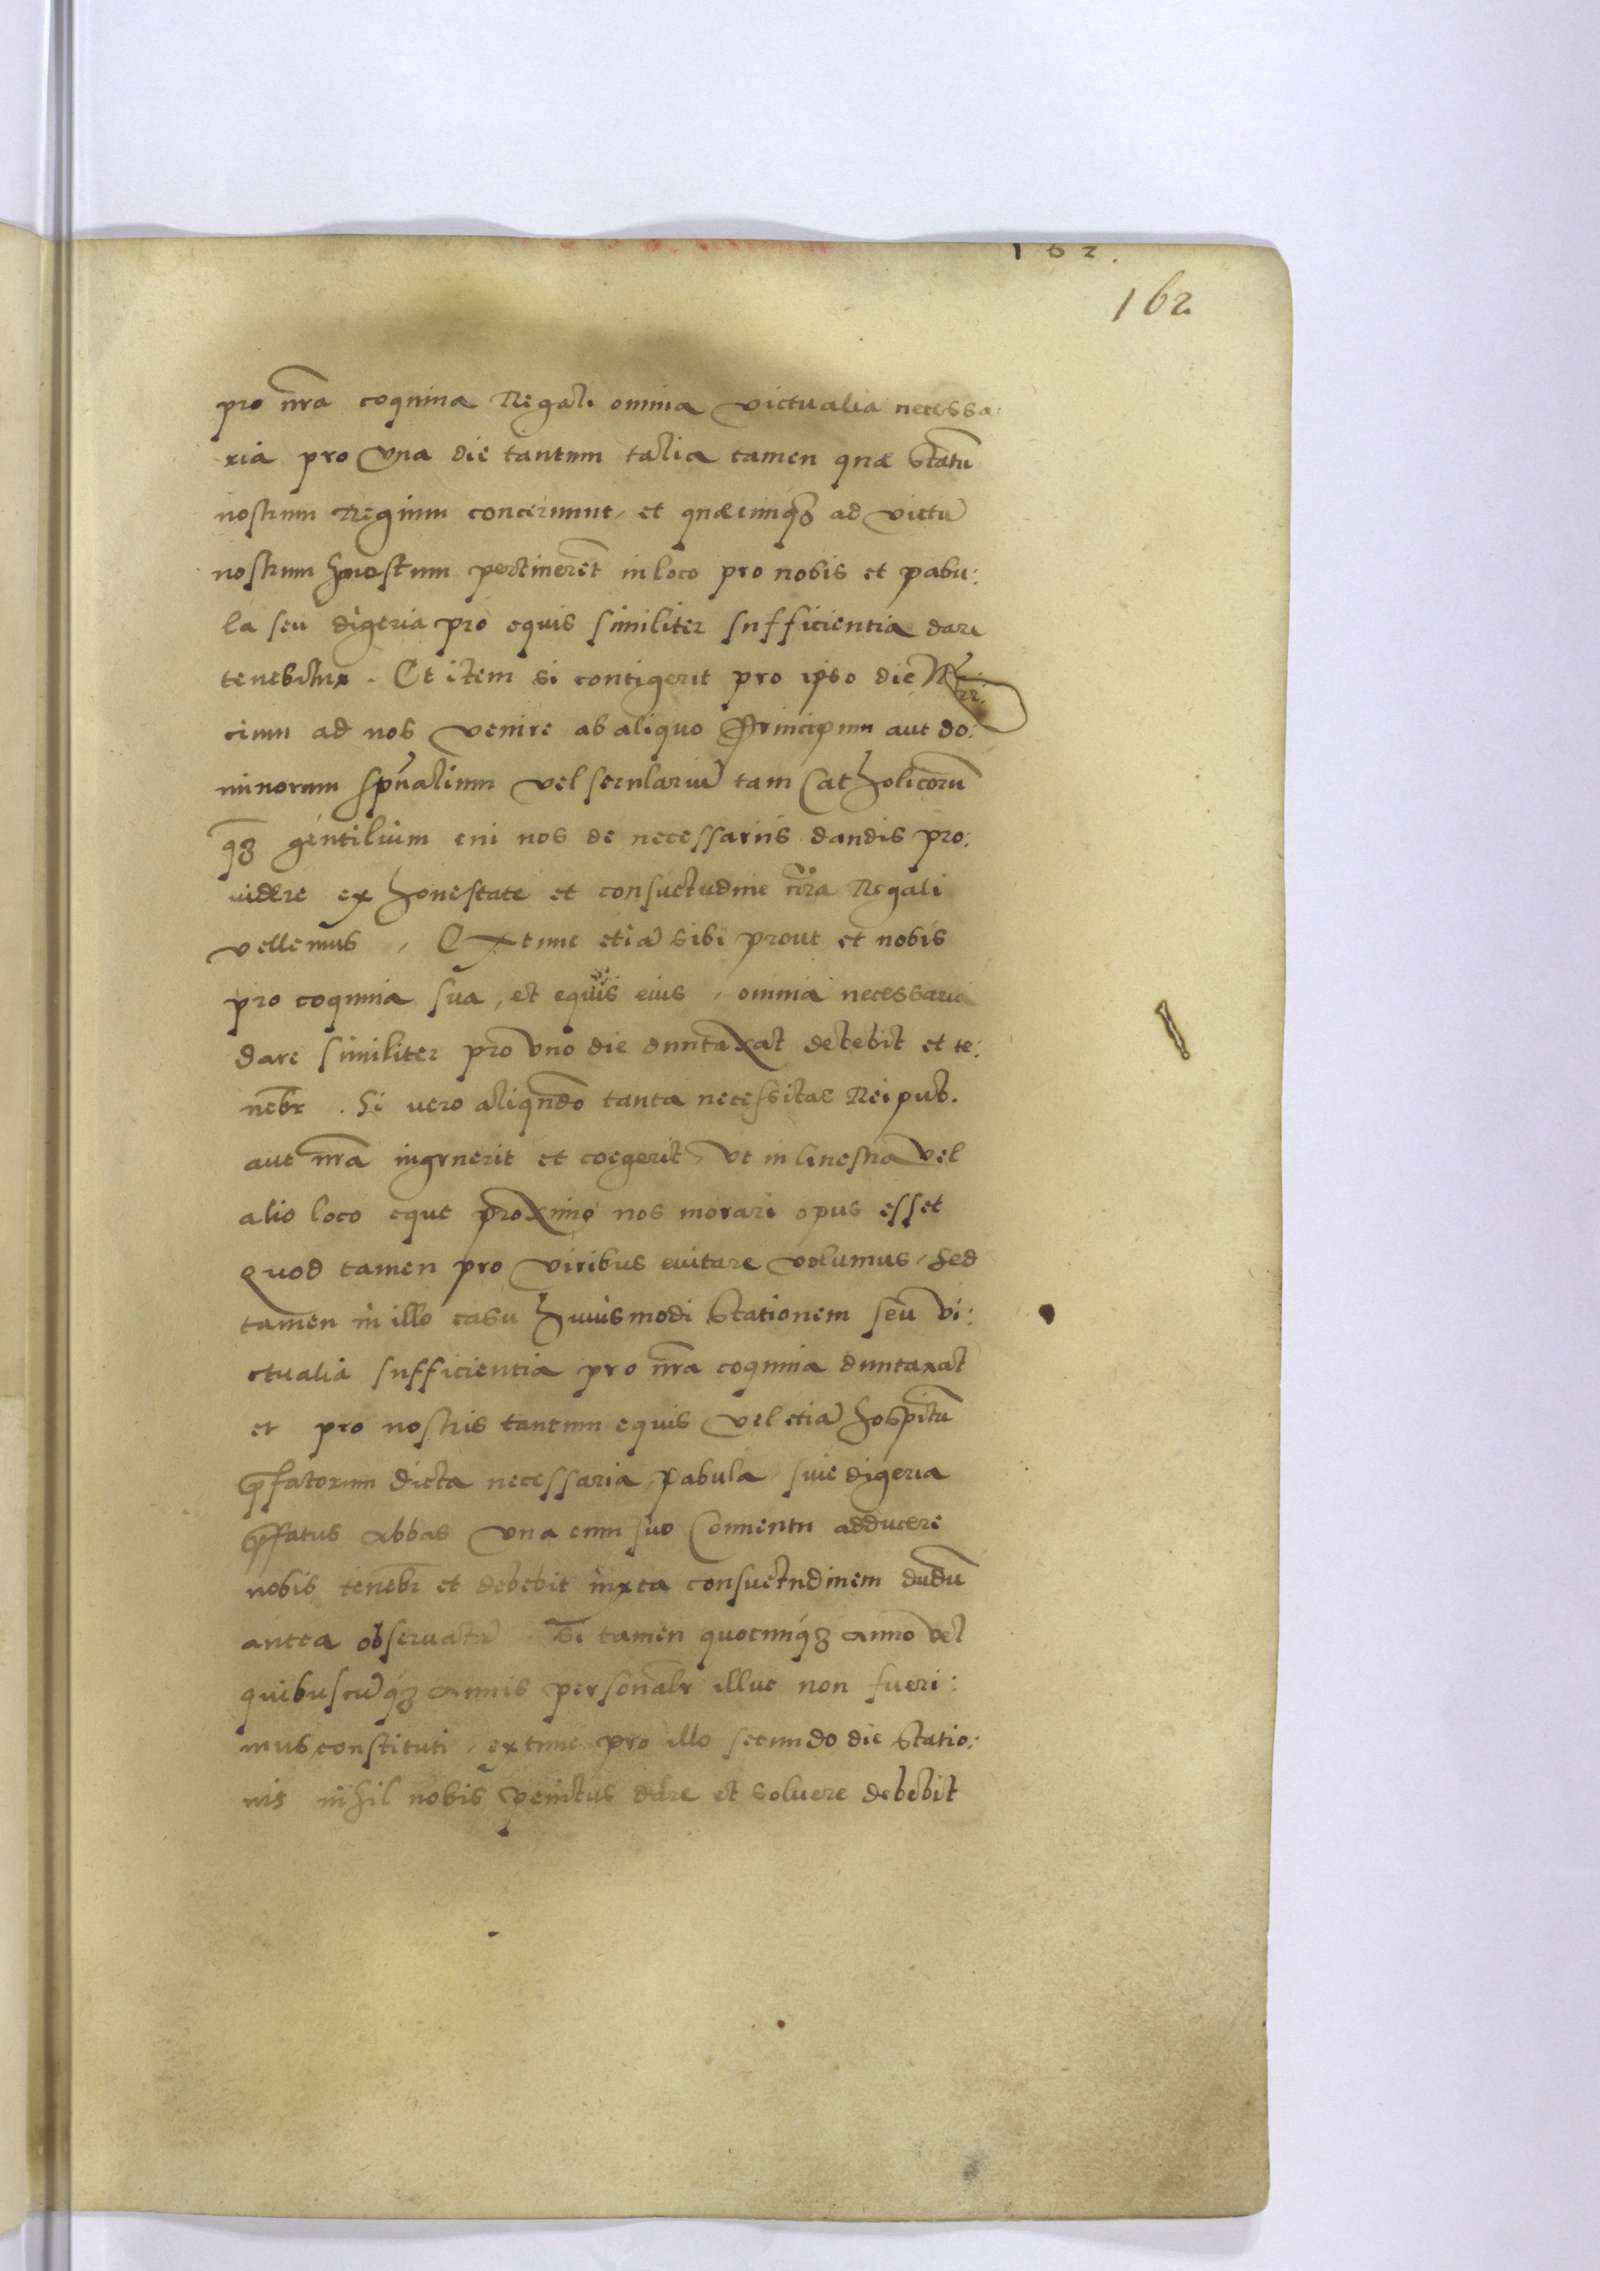 162.
162
pro nr̃a coquina Regali omnia victualia necessa:
ria pro vna die tantum talia tamen quæ statũ
nostrum Regium concernunt, et quæcunq3 ad victũ
nostrum honestum pertinerẽt in loco pro nobis et pabu:
la seu digeria pro equis similiter sufficientia dare
tenebitur. Et item si contigerit pro ipso die
cium ad nos venire ab aliquo Principum aut do:
minorum spũalium vel seculariũ tam Catholicorũ
q̃3 gentilium cui nos de necessariis dandis pro:
uidere ex honestate et consuetudine nr̃a Regali
vellemus, Extunc etiã sibi prout et nobis
pro coquina sua, et equis eius, omnia necessaria
dare similiter pro vno die duntaxat debebit et te:
nebr̃. Si uero aliquãdo tanta necessitas Reipub.
aut nr̃a ingruerit et coegerit, vt in linestra vel
alio loco eque proximo nos morari opus esset
Quod tamen pro viribus euitare volumus, Sed
tamen in illo casu huiusmodi Stationem seu vi:
ctualia sufficientia pro nr̃a coquina duntaxat
et pro nostris tantum equis vel etiã hospitũ
p̃fatorum dicta necessaria, pabula siue digeria
p̃fatus Abbas vna cum suo Conuentu adducere
nobis tenebr̃ et debebit iuxta consuetudinem dudũ
antea obseruatã. Si tamen quocunq3 anno vel
quibuscũq3 annis personalr̃ illuc non fueri:
mus constituti, extunc pro illo secundo die Statio:
nis nihil nobis penitus dare et soluere debebit